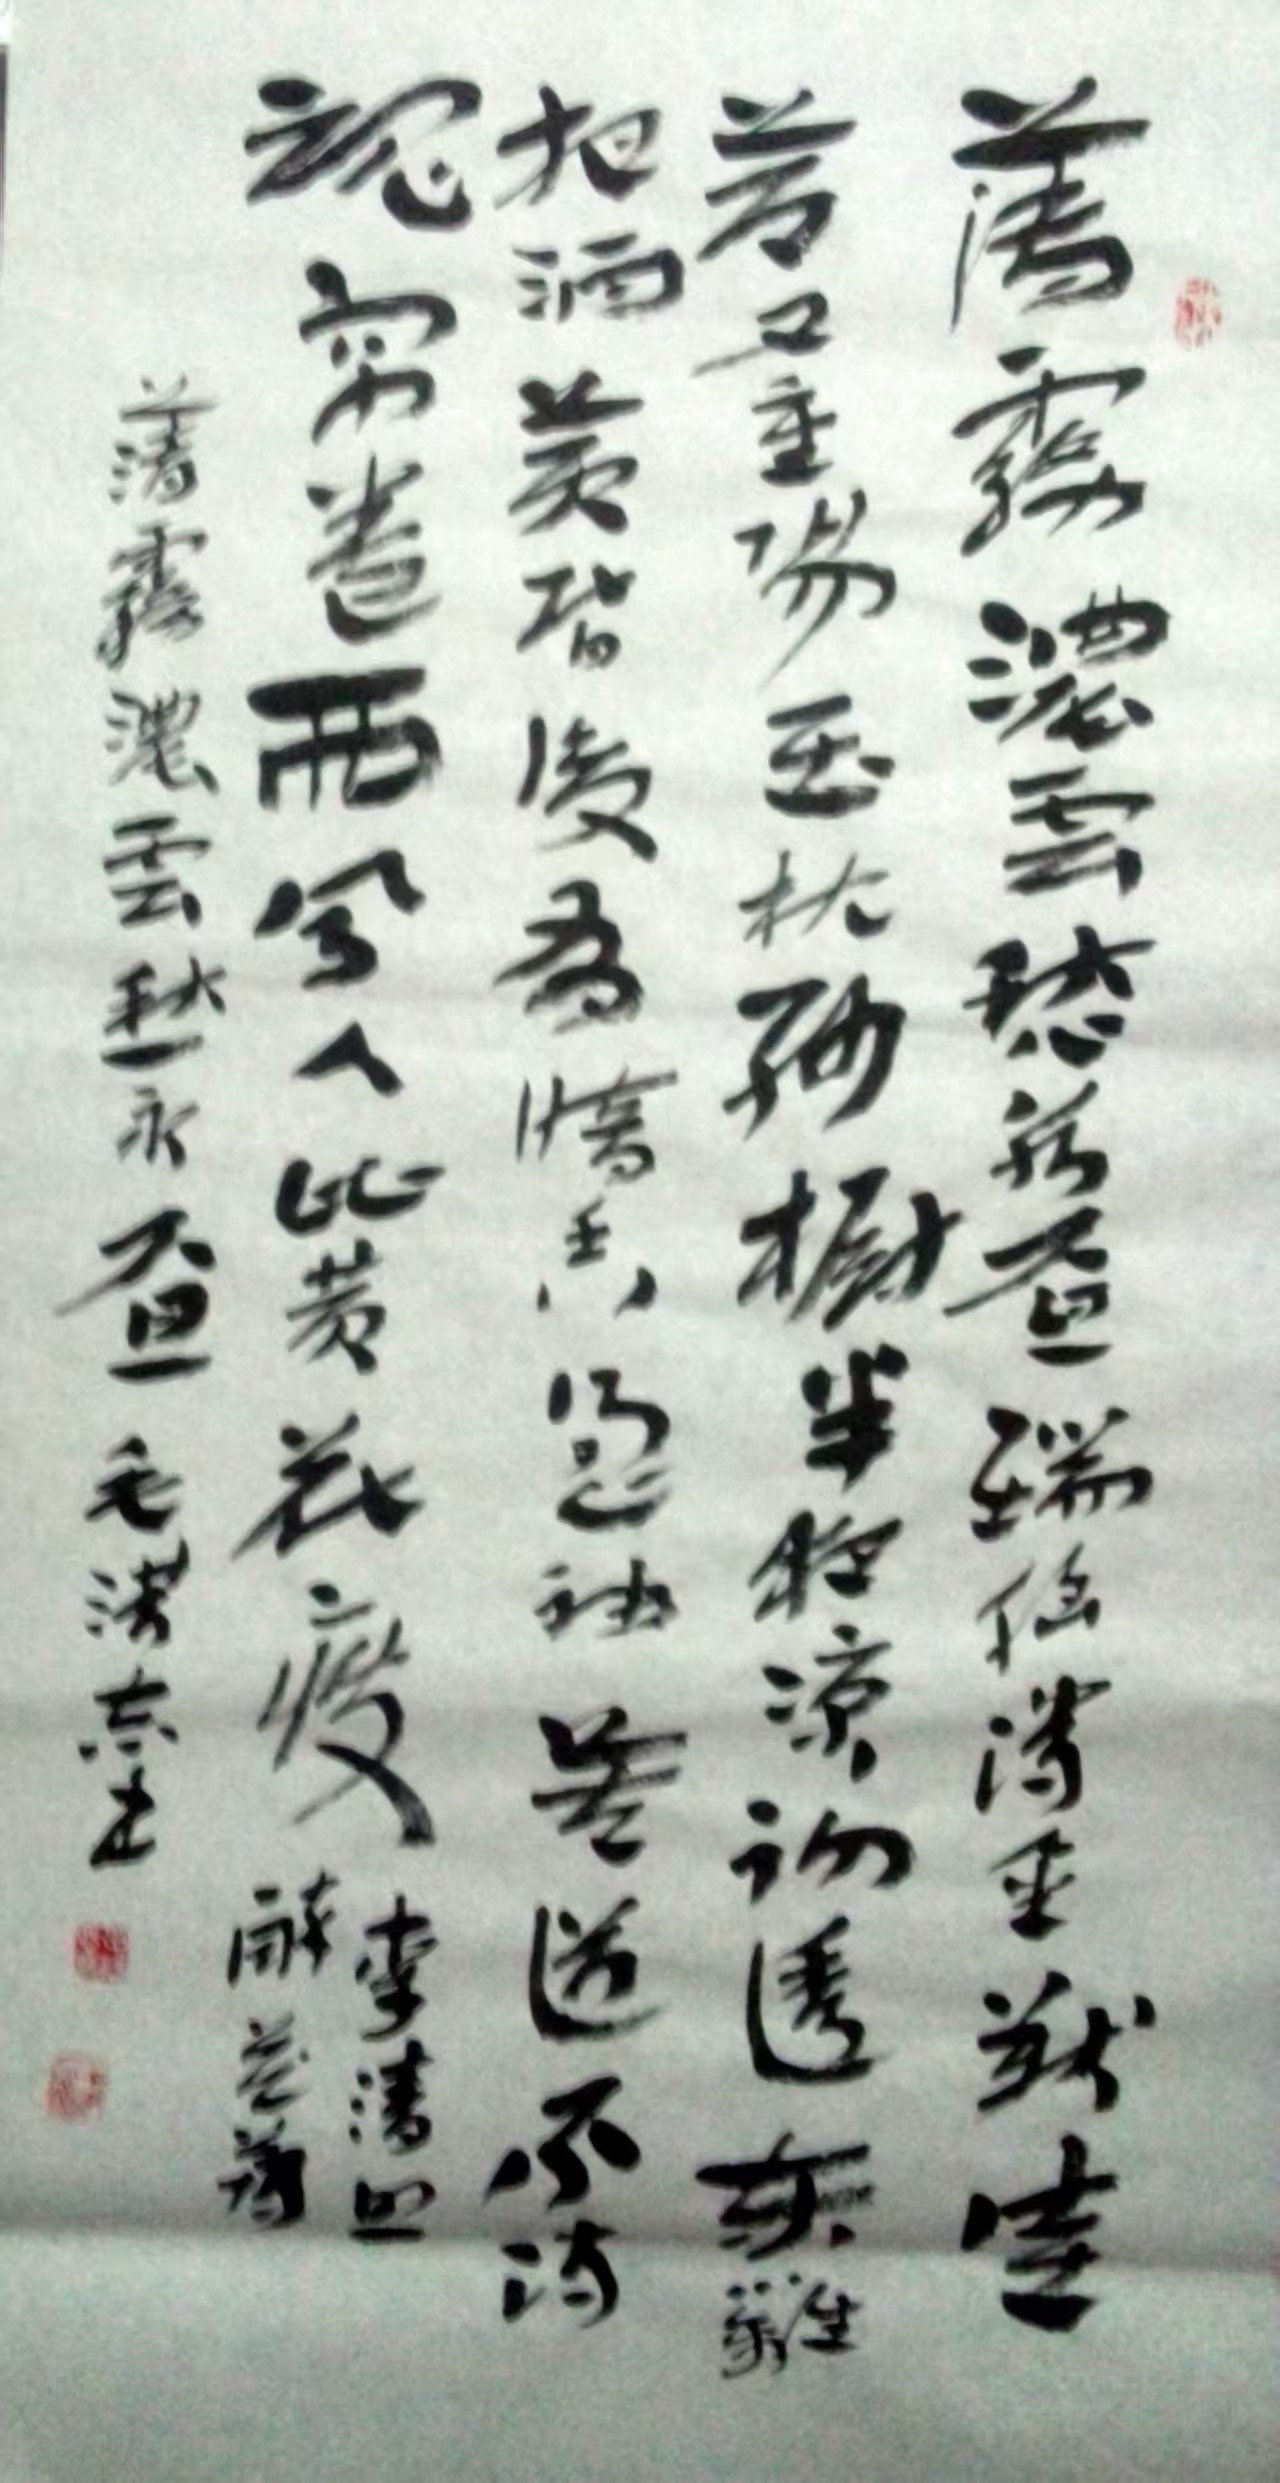 薄霧濃雲愁永晝瑞腦消金獸佳
節又重陽玉枕紗櫥半夜涼初透東籬
把酒黃昏後有暗香盈袖莫道不消
魂簾卷西風人比黃花瘦
李清照
醉花蔭
薄霧濃雲愁永晝 毛